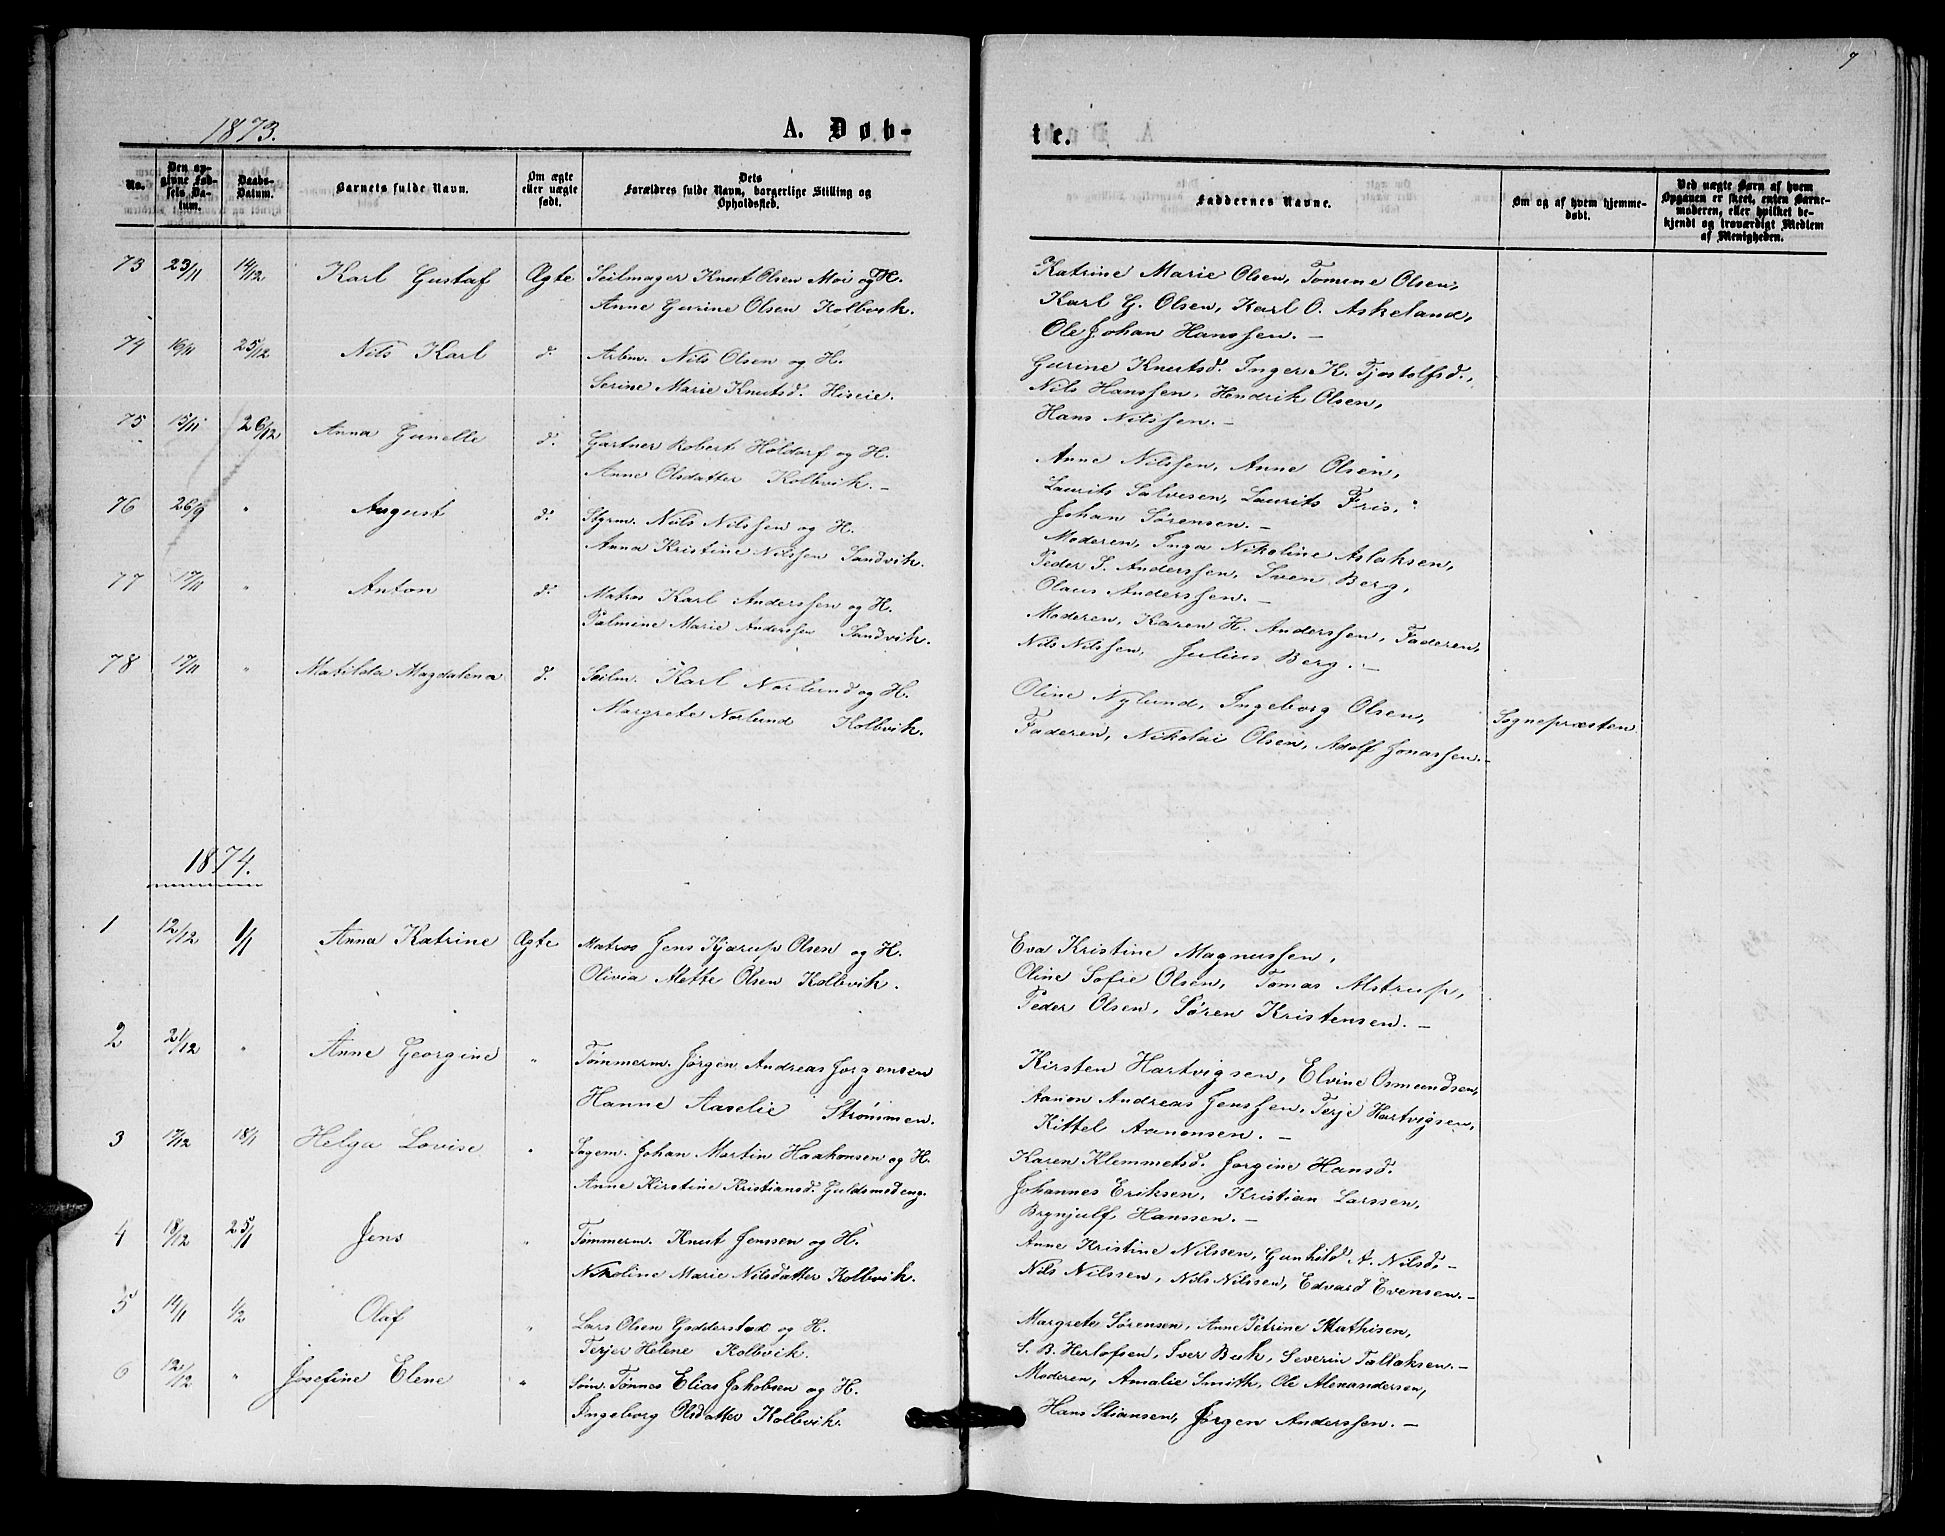 7
1873.
A. Døb-
te.
No.
Den op-
givne Fød-
sels Da-
tum.
Daabs-
Datum.
Barnets fulde Navn.
Om ægte
eller uægte
født.
Dets
Forældres fulde Navn, borgerlige Stilling og
Opholdssted.
Faddernes Navne.
Om og af hvem hjemme-
døbt.
Ved uægte Børn af hvem
Opgaven er skeet, enten Barne-
moderen, eller hvilket be-
kjendt og troværdigt Medlem
af Menigheden.
73 23/11 14/12 Karl Gustaf Ægte Seilmager Knut Olsen Moi og H.
Anne Gurine Olsen Kolbvik.
Katrine Marie Olsen, Tomine Olsen,
Karl G. Olsen, Karl O. Askeland,
Ole Johan Hanssen. –
74 16/11 25/12 Nils Karl d. Arbm. Nils Olsen og H.
Serine Marie Knutsd. Hiseie.
Gurine Knutsd. Inger K. Tjostolfsd.,
Nils Hanssen, Hendrik Olsen,
Hans Nilssen. –
75 15/11 26/12 Anna Gunelle d. Gartner Robert Holdorf og H.
Anne Olsdatter Kolbvik. –
Anne Nilssen, Anne Olsen,
Laurits Salvesen, Laurits Friis,
Johan Sørensen. –
76 26/9 " August d. Styrm. Nils Nilssen og H.
Anna Kristine Nilssen Sandvik.
Moderen, Inga Nikoline Aslaksen,
Peder S. Anderssen, Sven Berg,
Olaus Anderssen. –
77 17/11 " Anton d. Matros Karl Anderssen og H.
Palmine Marie Anderssen Sandvik.
Moderen, Karen H. Anderssen, Faderen,
Nils Nilssen, Julius Berg. –
78 17/11 " Matilda Magdalena d. Seilm. Karl Norlund og H.
Margrete Norlund Kolbvik.
Oline Nylund, Ingeborg Olsen,
Faderen, Nikolai Olsen, Adolf Jonassen. –
Sognepræsten
1874.
1 12/12 1/1 Anna Katrine Ægte Matros Jens Kjærup Olsen og H.
Olivia Mette Olsen Kolbvik.
Eva Kristine Magnussen,
Oline Sofie Olsen, Tomas Alstrup,
Peder Olsen, Søren Kristensen. –
2 21/12 " Anne Georgine " Tømmerm. Jørgen Andreas Jørgensen
Hanne Aaselie Strømmen.
Kirsten Hartvigsen, Elvine Osmundsen,
Aanon Andreas Jenssen, Terje Hartvigsen,
Kittel Aanonsen. –
3 17/12 18/1 Helga Lovise " Sagem. Johan Martin Haakonsen og H.
Anne Kirstine Kristiansd. Guldsmedeng.
Karen Klemmetsd. Jørgine Hansd.
Johannes Eriksen, Kristian Larssen,
Brynjulf Hanssen. –
4 18/12 25/1 Jens " Tømmerm. Knut Jenssen og H.
Nikoline Marie Nilsdatter Kolbvik.
Anne Kristine Nilssen, Gunhild A. Nilsd. –
Nils Nilssen, Nils Nilssen, Edvard Evensen. –
5 14/11 1/2 Olaf " Lars Olsen Gadderstad og H.
Terjer Helene Kolbvik.
Margrete Sørensen, Anne Petrine Mathisen,
S. B. Herlofsen, Iver Buk, Severin Tallaksen. –
6 12/12 " Josefine Elene " Søm. Tønnes Elias Jakobsen og H.
Ingeborg Olsdatter Kolbvik.
Moderen, Amalie Smith, Ole Alexandersen,
Hans Stiansen, Jørgen Anderssen. –